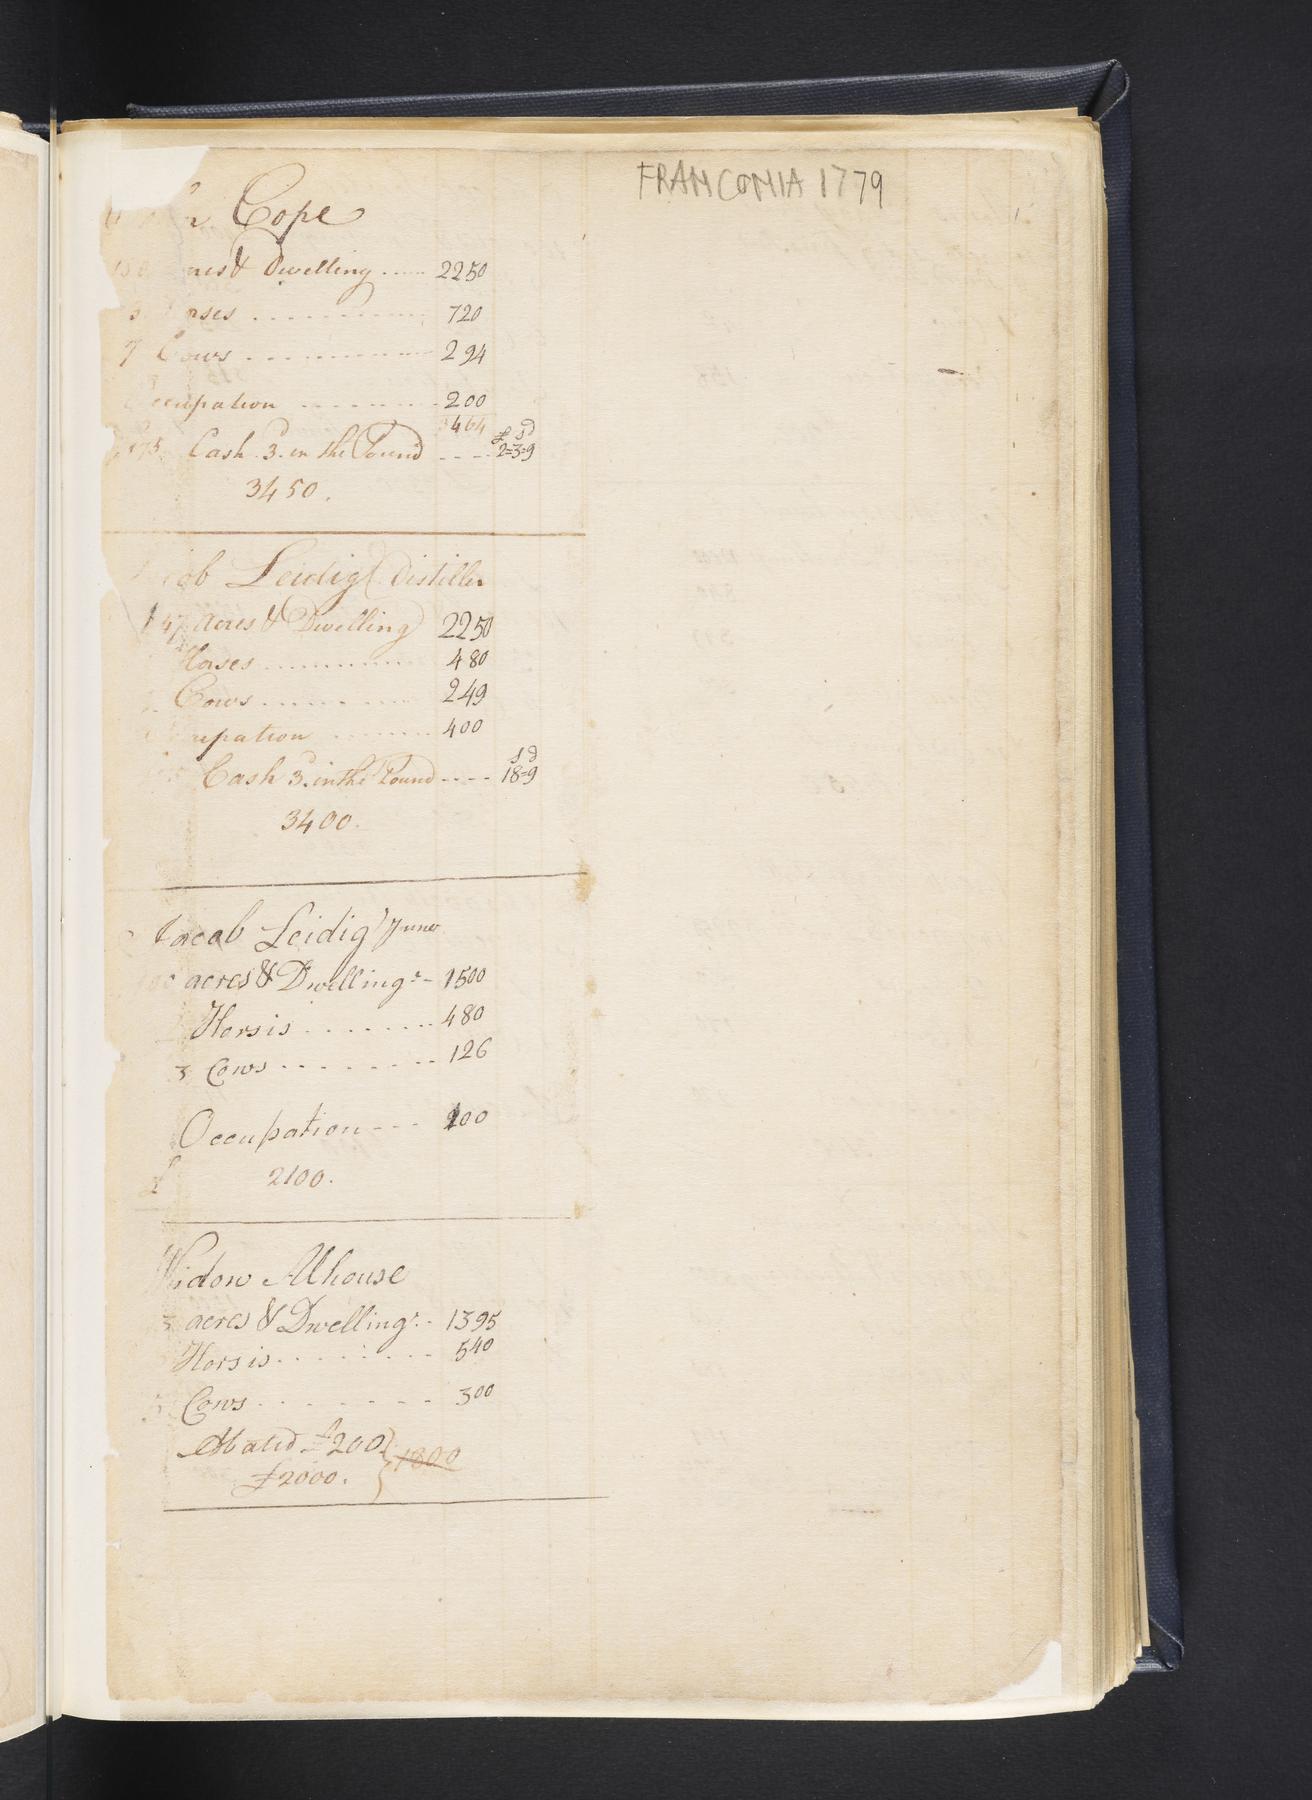 FRANCONIA 1779
Cope
acres & Dwelling ..... 2250
3 Horses ............ 720
7 Cows ............ 294
Occupation ......... 200
3464
£ s d
175 Cash 3d. in the Pound .... 2=3=9
3450.
Jacob Leidig Distiller
147 Acres & Dwelling 2250
Horses ............ 480
Cows ............ 249
Occupation ........ 400
s d
Cash 3d. in the Pound .... 18=9
3400.
Jacob Leidig Junor
100 acres & Dwelling - 1500
Horsis ........ 480
3 Cows ......... 126
Occupation --- 100
£ 2100.
Widow Alhouse
acres & Dwelling .. 1395
Horsis ......... 540
5 Cows ........ 300
Abated £200
£2000. } 1800